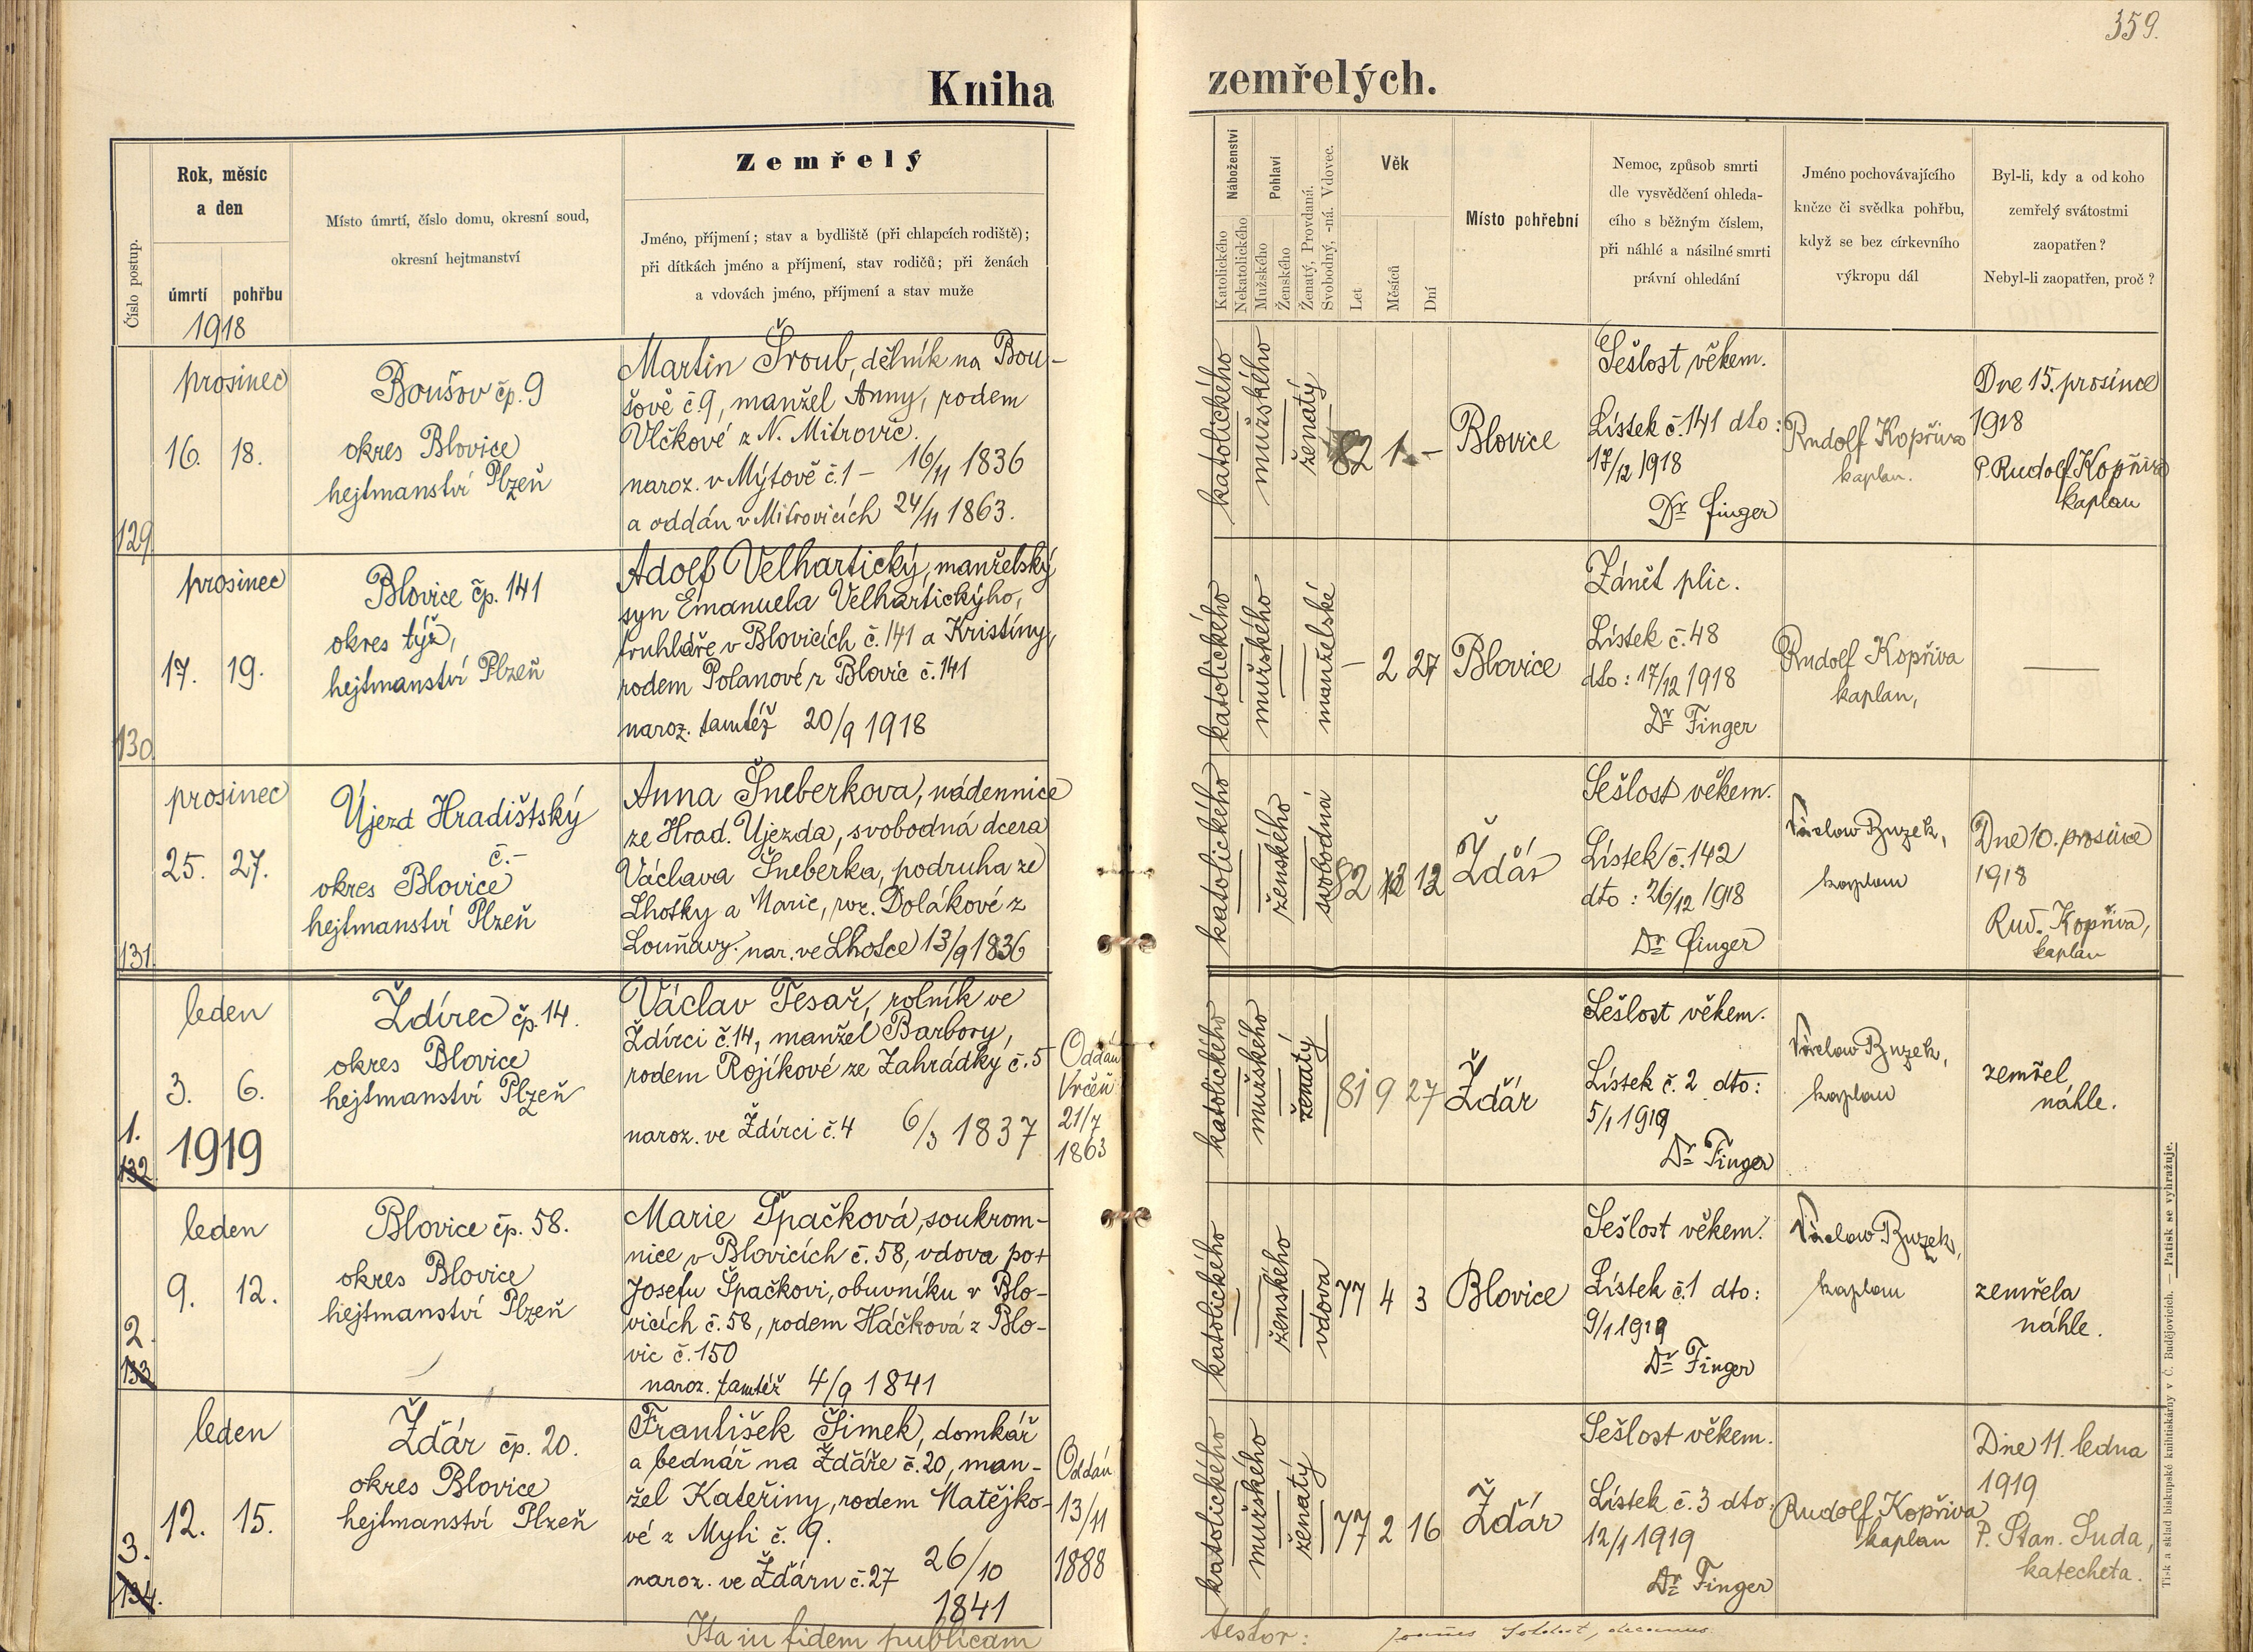 359.
Kniha zemřelých.
Číslo postup.
Rok, měsíc
a den
úmrtí
pohřbu
1918
Místo úmrtí, číslo domu, okresní soud,
okresní hejtmanství
Zemřelý
Jméno, příjmení; stav a bydliště (při chlapcích rodiště);
při dítkách jméno a příjmení, stav rodičů; při ženách
a vdovách jméno, příjmení a stav muže
Náboženství
Katolického
Nekatolického
Pohlaví
Mužského
Ženského
Ženatý, Provdaná.
Svobodný, -ná. Vdovec.
Věk
Let
Měsíců
Dní
Místo pohřební
Nemoc, způsob smrti
dle vysvědčení ohleda-
cího s běžným číslem,
při náhlé a násilné smrti
právní ohledání
Jméno pochovávajícího
kněze či svědka pohřbu,
když se bez církevního
výkropu dál
Byl-li, kdy a od koho
zemřelý svátostmi
zaopatřen?
Nebyl-li zaopatřen, proč?
129
prosinec
16. 18.
Boušov čp. 9
okres Blovice
hejtmanství Plzeň
Martin Šroub, dělník na Bou-
šově č. 9, manžel Anny, rodem
Vlčkové z N. Mitrovic.
naroz. v Mýtově č. 1 – 16/11 1836
a oddán v Mitrovicích 24/11 1863.
katolického
mužského
ženatý
82 1 –
Blovice
Sešlost věkem.
Lístek č. 141 dto:
17/12 1918
Dr Finger
Rudolf Kopřiva
kaplan.
Dne 15. prosince
1918
P. Rudolf Kopřiva
kaplan
130
prosinec
17. 19.
Blovice čp. 141
okres týž,
hejtmanství Plzeň
Adolf Velhartický, manželský
syn Emanuela Velhartickýho,
truhláře v Blovicích č. 141 a Kristiny,
rodem Polanové z Blovic č. 141
naroz. tamtéž 20/9 1918
katolického
mužského
manželské
– 2 27
Blovice
Zánět plic.
Lístek č. 48
dto: 17/12 1918
Dr Finger
Rudolf Kopřiva
kaplan,
—
131.
prosinec
25. 27.
Újezd Hradištský
č. –
okres Blovice
hejtmanství Plzeň
Anna Šneberkova, nádennice
ze Hrad. Újezda, svobodná dcera
Václava Šneberka, podruha ze
Lhotky a Marie, roz. Dolákové z
Louňavy. nar. ve Lhotce 13/9 1836
katolického
ženského
svobodná
82 3 12
Žďár
Sešlost věkem.
Lístek č. 142
dto: 26/12 1918
Dr Finger
Václav Buzek,
kaplan
Dne 10. prosince
1918
Rud. Kopřiva,
kaplan
1.
132
leden
3. 6.
1919
Ždírec čp. 14.
okres Blovice
hejtmanství Plzeň
Václav Tesař, rolník ve
Ždírci č. 14, manžel Barbory,
rodem Rojíkové ze Zahrádky č. 5
naroz. ve Ždírci č. 4 6/3 1837
Oddán
Vrčeň
21/7
1863
katolického
mužského
ženatý
81 9 27
Žďár
Sešlost věkem.
Lístek č. 2 dto:
5/1 1919
Dr Finger
Václav Buzek,
kaplan
zemřel
náhle.
2
133
leden
9. 12.
Blovice čp. 58.
okres Blovice
hejtmanství Plzeň
Marie Špačková, soukrom-
nice v Blovicích č. 58, vdova po +
Josefu Špačkovi, obuvníku v Blo-
vicích č. 58, rodem Háčková z Blo-
vic č. 150
naroz. tamtéž 4/9 1841
katolického
ženského
vdova
77 4 3
Blovice
Sešlost věkem.
Lístek č. 1 dto:
9/1 1919
Dr Finger
Václav Buzek,
kaplan
zemřela
náhle.
3.
134.
leden
12. 15.
Žďár čp. 20.
okres Blovice
hejtmanství Plzeň
František Šimek, domkář
a bednář na Žďáře č. 20, man-
žel Kateřiny, rodem Matějko-
vé z Myti č. 9.
naroz. ve Žďáru č. 27 26/10
1841
Oddán
13/11
1888
katolického
mužského
ženatý
77 2 16
Žďár
Sešlost věkem.
Lístek č. 3 dto:
12/1 1919
Dr Finger
Rudolf Kopřiva
kaplan
Dne 11. ledna
1919
P. Stan. Suda,
katecheta.
Ita in fidem publicam testor:
Tisk a sklad biskupské knihtiskárny v Č. Budějovicích. — Patisk se vyhražuje.